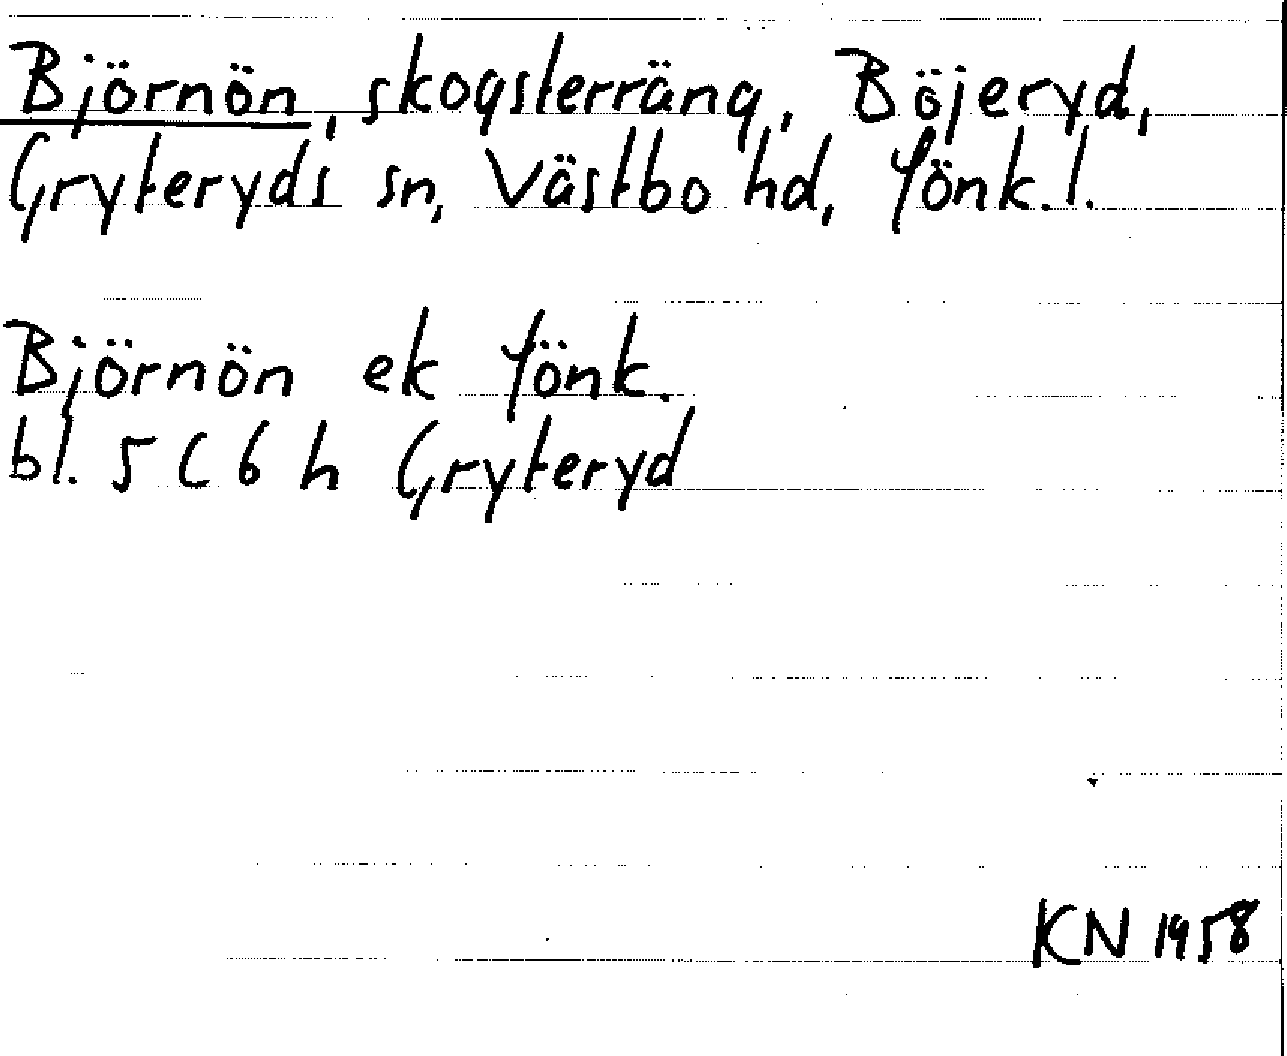 Björnön, skogsterräng, Böjeryd,
Gryteryds sn, Västbo hd, Jönk. l.
Björnön ek Jönk.
bl. 5 C 6 h Gryteryd
KN 1958